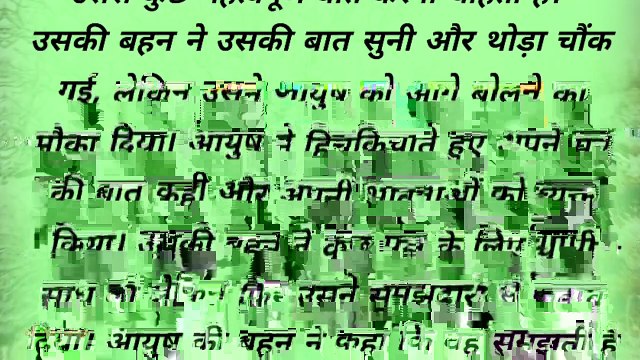 उसकी बहन ने उसकी बात सुनी और थोड़ा चौंक
गई, लेकिन उसने आयुष को आगे बोलने का
मौका दिया। आयुष ने हिचकिचाते हुए अपने मन
की बात कही और अपनी भावनाओं को व्यक्त
किया। उसकी बहन ने कुछ पल के लिए चुप्पी
फिर उसने समझदारी से
दिया। आयुष की बहन ने कहा कि वह समझती है